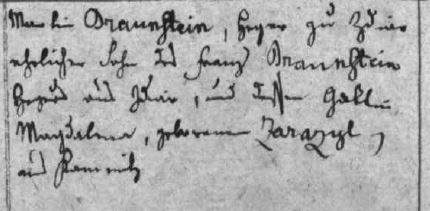 Martin Braunstein, Heger zu Zdiar
ehelicher Sohn des Franz Braunstein
Hegers aus Zdiar, und dessen Gattin
Magdalena, geborenen Zarazyl,
aus